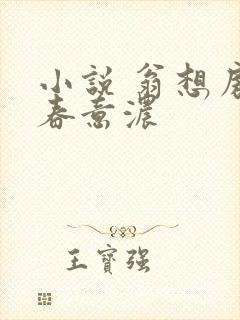 小說 翁想
春意濃
王寶强